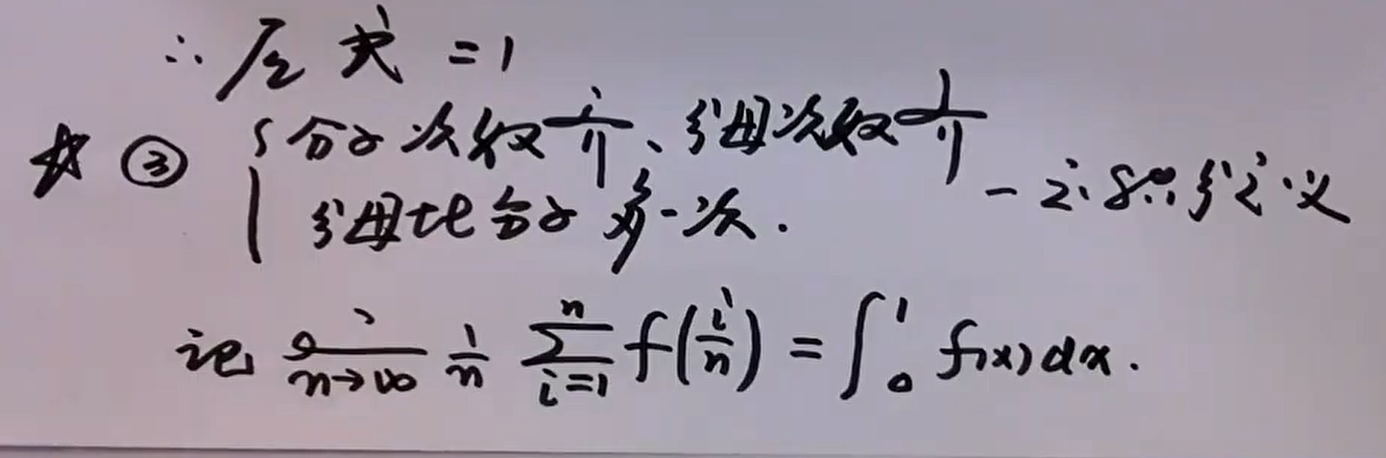 ∴ 原式 = 1
☆ ③ { 分子次数齐、分母次数齐
分母比分子多一次. — 定积分定义
记 lim n→∞ 1/n ∑ i=1 n f(i/n) = ∫₀¹ f(x)dx.